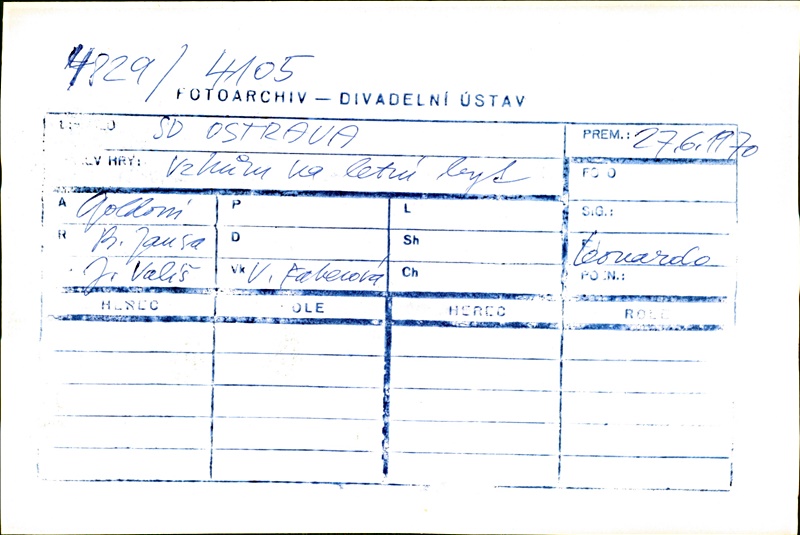 4829/ 4105
FOTOARCHIV — DIVADELNÍ ÚSTAV
SD OSTRAVA PREM.: 27.6.1970
HRY: Vzhůru na letní byt FOTO
A Goldoni P L SIG.:
R B. Jansa D Sh Leonardo
J. Vališ Vk V. Faberová Ch POZN.:
HEREC ROLE HEREC ROLE